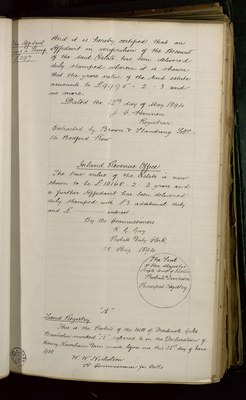 And it is hereby certified that an
Affidavit in verification of the Account
of the said Estate has been delivered
duly stamped wherein it is shewn
that the gross value of the said Estate
amounts to £9995 - 2 - 3 and
no more.
Dated the 12th day of May 1894
Registrar
Extracted by Brown &
Bedford Row
Inland Revenue Office
The true value of the Estate is now
shewn to be £10168 - 2 - 2 gross and
a further Affidavit has been delivered
duly stamped with £3 additional duty
and £ interest
By the Commissioners
Probate Duty Clerk
Aug. 1894
The Seal
of Her Majesty's
High Court of Justice
Probate Division
Principal Registry
"A"
Land Registry
This is the Probate of the Will of Frederick
marked "A" referred to in the Declaration of
Henry made before me this day of
W. W.
A Commissioner for Oaths